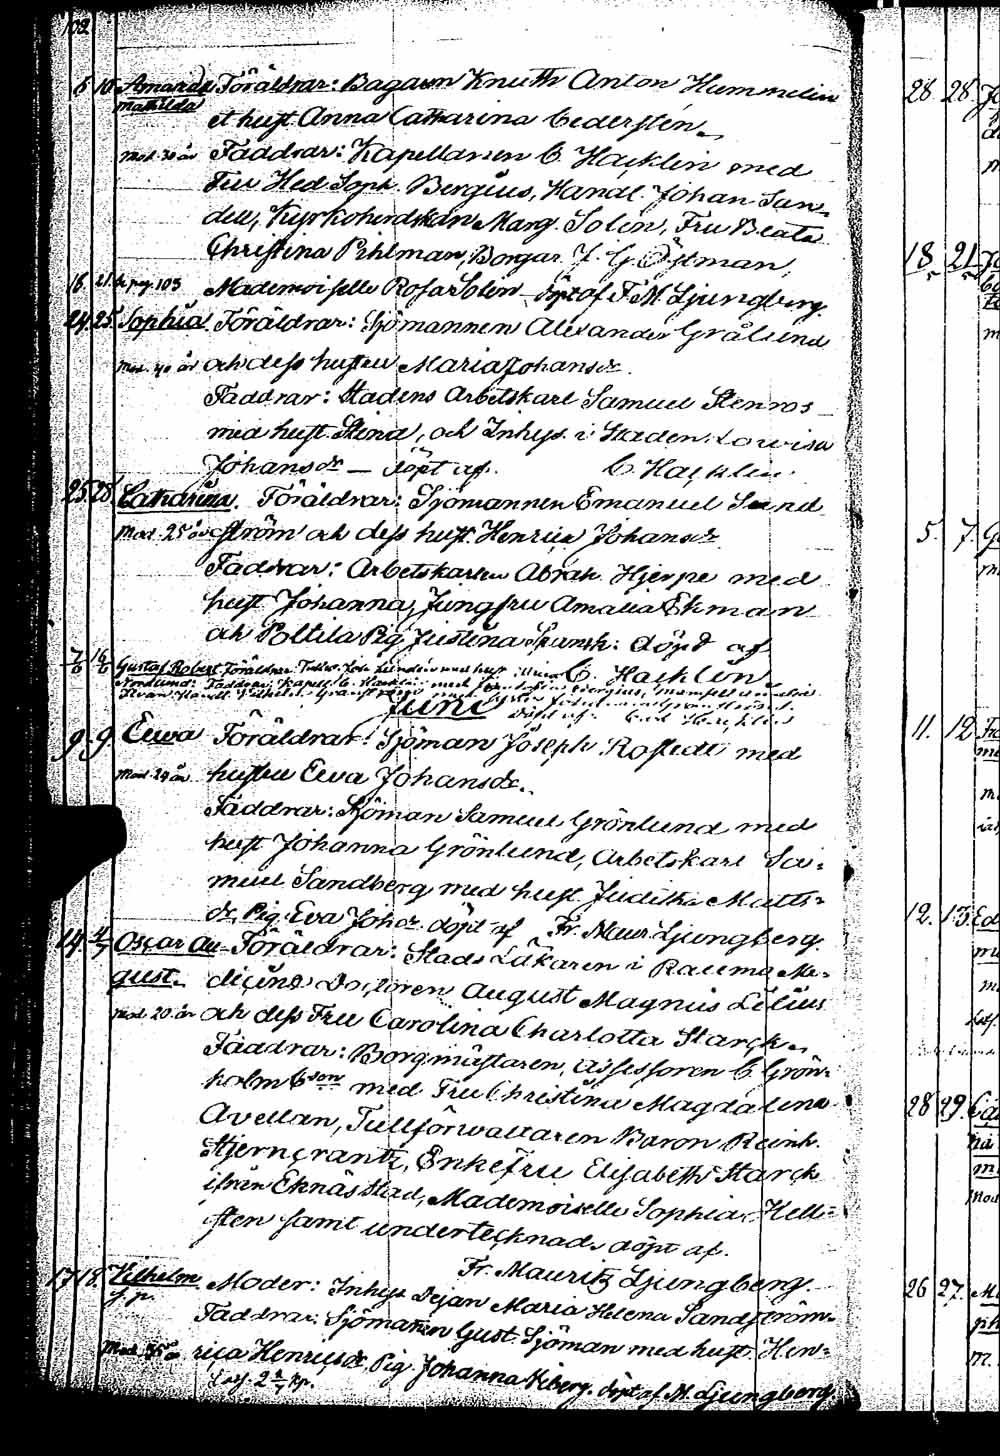 102
6 10 Amanda Föräldrar: Bagaren Knuth Anton Hummelin
Mathilda et hust. Anna Catharina Cederstén
Mod. 30 år Faddrar: Kapellanen C. Hacklin med
Fru Hed. Soph. Bergius, Handl. Johan Sun-
dell, Kyrkoherdskan Marg. Solin, Fru Beata
Christina Pihlman, Borgar. J. G. Östman,
16. 21. Se pag. 103 Mademoiselle Rosa Solin döpt af F. M. Ljungberg.
24. 25. Sophia. Föräldrar: Sjömannen Alexander Grålund
Mod. 40 år och dess hustru Maria Johansdr.
Faddrar: Stadens Arbetskarl Samuel Stenros
med hust. Stina, och Inhys. i Staden Lowisa
Johansdr — döpt af. C. Hacklin.
25 28 Catharina. Föräldrar: Sjömannen Emanuel Sund
Mod. 25 år ström och dess hust. Henrica Johansdr
Faddrar: Arbetskarlen Abrah. Hjerpe med
hust. Johanna, Jungfru Amalia Ekman
och Poltila Pig. Justina Spansk: döpt af
C. Hacklin.
7/6 16/6 Gustaf Robert Föräldrar: med hust.
Nordlund: Faddrar: Kapell. C. Hacklin med
Juni
döpt af: Carl Hacklin
9. 9. Ewa Föräldrar: Sjöman Joseph Rostedt med
Mod. 29 år hustru Ewa Johansdr.
Faddrar: Sjöman Samuel Grönlund med
hust. Johanna Grönlund, Arbetskarl Sa-
muel Sandberg med hust. Juditha Matts-
dr, Pig. Eva Johdr. döpt af Fr. Maur. Ljungberg.
14. 4/7 Oscar Au- Föräldrar: Stads Läkaren i Raumo Me-
gust. dicinæ Doctoren August Magnus Lilius
Mod. 20 år och dess Fru Carolina Charlotta Starck.
Faddrar: Borgmästaren, Assessoren C. Grön-
holm med Fru Christina Magdalena
Avellan, Tullförwaltaren Baron Reinh.
Stjerncrantz, EnkeFru Elisabeth Starck
ifrån Eknäs Stad, Mademoiselle Sophia Hell-
sten samt undertecknad, döpt af.
Fr. Mauritz Ljungberg.
17 18. Vilhelm Moder: Inhys Dejan Maria Helena Sandström.
Faddrar: Sjömannen Gust. Sjöman med hust. Hen-
Mod. 35 år rica Henricsdr, Pig. Johanna Viberg. döpt af M. Ljungberg.
28. 28.
18. 21.
5. 7.
11. 12
12. 13. Ed
28 29.
26 27.